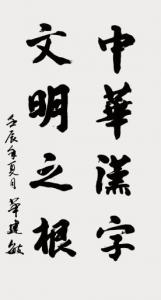 中華漢字
文明之根
壬辰年夏月 單建敏